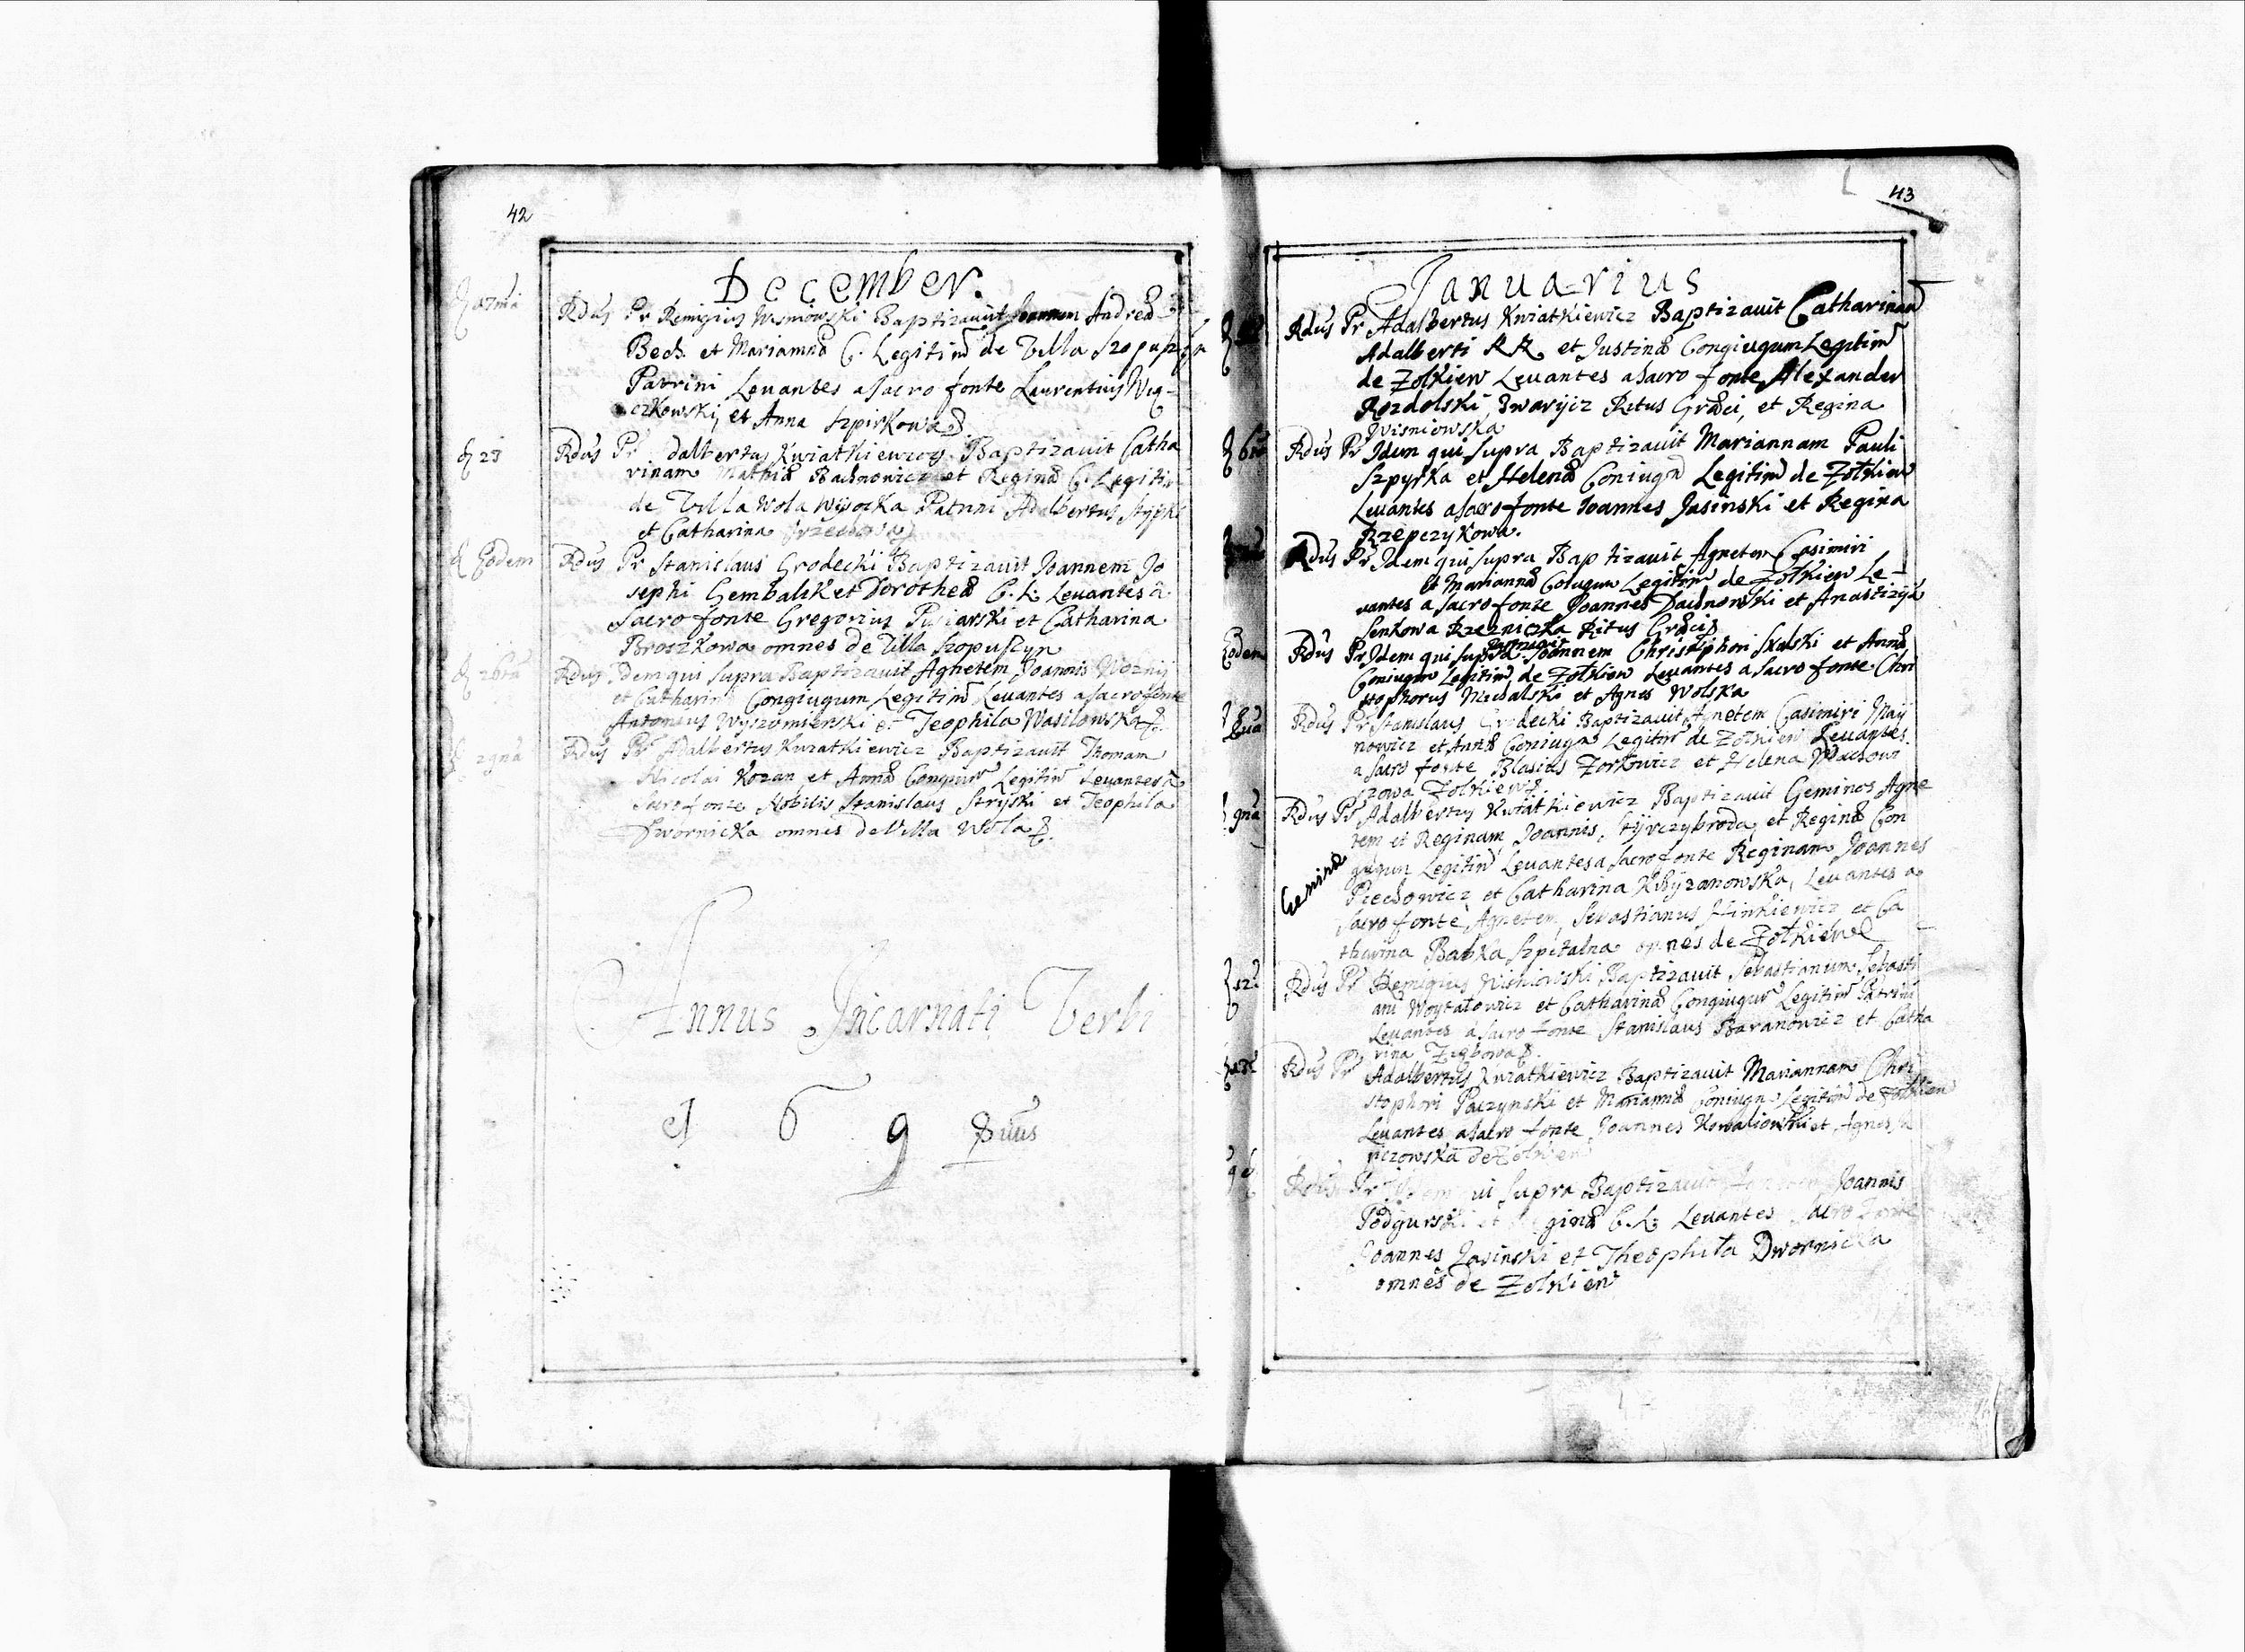 42
December.
17ma
Rdus Pr Remigius Wisniowski Baptizauit Andreã
Bech. et Mariannæ C. Legitim̃ de Villa Szopuszyn
Patrini Leuantes a Sacro fonte Laurentius Wię-
czkowski, et Anna Szpirkowa
23
Rdus Pr dalbertus Kwiatkiewicz Baptizauit Catha
rinam Mathiæ Bachnowicz et Reginæ C. Legitim
de Villa Wola Wysocka Patrini Adalbertus
et Catharina
Eodem
Rdus Pr Stanislaus Grodecki Baptizauit Joannem Jo
sephi Gembalik et Dorotheæ C. L: Leuantes â
Sacro fonte Gregorius et Catharina
Broszkowa omnes de Villa Szopuszyn
26ta
Rdus Idem qui Supra Baptizauit Agnetem Joannis Wozny
et Catharinæ Congiugum Legitim̃ Leuantes a Sacro fonte
Antonius Wyszomierski et Teophila Wasilowska
29na
Rdus Pr Adalbertus Kwiatkiewicz Baptizauit Thomam
Nicolai Kozan et Annæ Congium̃ Legitim̃ Leuantes â
Sacro fonte Nobilis Stanislaus Stryiski et Teophila
Dwornicka omnes de Villa Wola
Annus Incarnati Verbi
1 6 9
43
Januarius
Rdus Pr Adalbertus Kwiatkiewicz Baptizauit Catharinam
Adalberti RR et Justinæ Congiugum Legitim̃
de Zolkiew Leuantes a Sacro fonte Alexander
Rozdolski, Ritus Græci, et Regina
Wisniowska
6ta
Rdus Pr Idem qui Supra Baptizauit Mariannam Pauli
Szpyrka et Helenæ Coniugũ Legitim̃ de Zolkiew
Leuantes a Sacro fonte Joannes Jasinski et Regina
Rzepczykowa.
Rdus Pr Idem qui Supra Baptizauit Agnetem Casimiri
et Mariannæ Coiugum Legitim̃ de Zolkiew Le-
uantes a Sacro fonte Joannes Dachnowski et Anastazya
Senkowa Rzezniczka Ritus Græci
Eodem
Rdus Pr Idem qui Supra Joannem Christophori Skalski et Annæ
Coniugum Legitim̃ de Zolkiew Leuantes a Sacro fonte Chri
stophorus Michalski et Agnes Wolska
8ua
Rdus Pr Stanislaus Grodecki Baptizauit Agnetem Casimiri May
nowicz et Annæ Coniugum Legitim̃ de Zolkiew Leuantes
a Sacro fonte Blasius Zorkowicz et Helena
szowa Zolkiew
9na
Rdus Pr Adalbertus Kwiatkiewicz Baptizauit Geminos Agne
tem et Reginam Joannis, Styrczybroda, et Reginæ Con
giugum Legitim̃ Leuantes a Sacro fonte Reginam Joannes
Geminæ
Piechowicz et Catharina Chryzanowska, Leuantes a
Sacro fonte Agnetem, Sebastianus Hinkiewicz et Ca
tharina Babka Szpitalna omnes de Zolkiew
12
Rdus Pr Remigius Wisniowski Baptizauit Sebastianum Sebasti
ani Woytalowicz et Catharinæ Congiugum̃ Legitim̃ Patrini
Leuantes a Sacro fonte Stanislaus Baranowicz et Catha
rina Ziębowa
Rdus Pr Adalbertus Kwiatkiewicz Baptizauit Mariannam Chri
stophori Paczynski et Mariannæ Coniugum Legitim̃ de Zolkiew
Leuantes a Sacro fonte Joannes Kowaliowski et Agnes
de Zolkiew
Rdus Pr Idem qui Supra Baptizauit Joannis
Podgurski et Reginæ C. L: Leuantes Sacro fonte
Joannes Jasinski et Theophila Dwornicka
omnes de Zolkiew